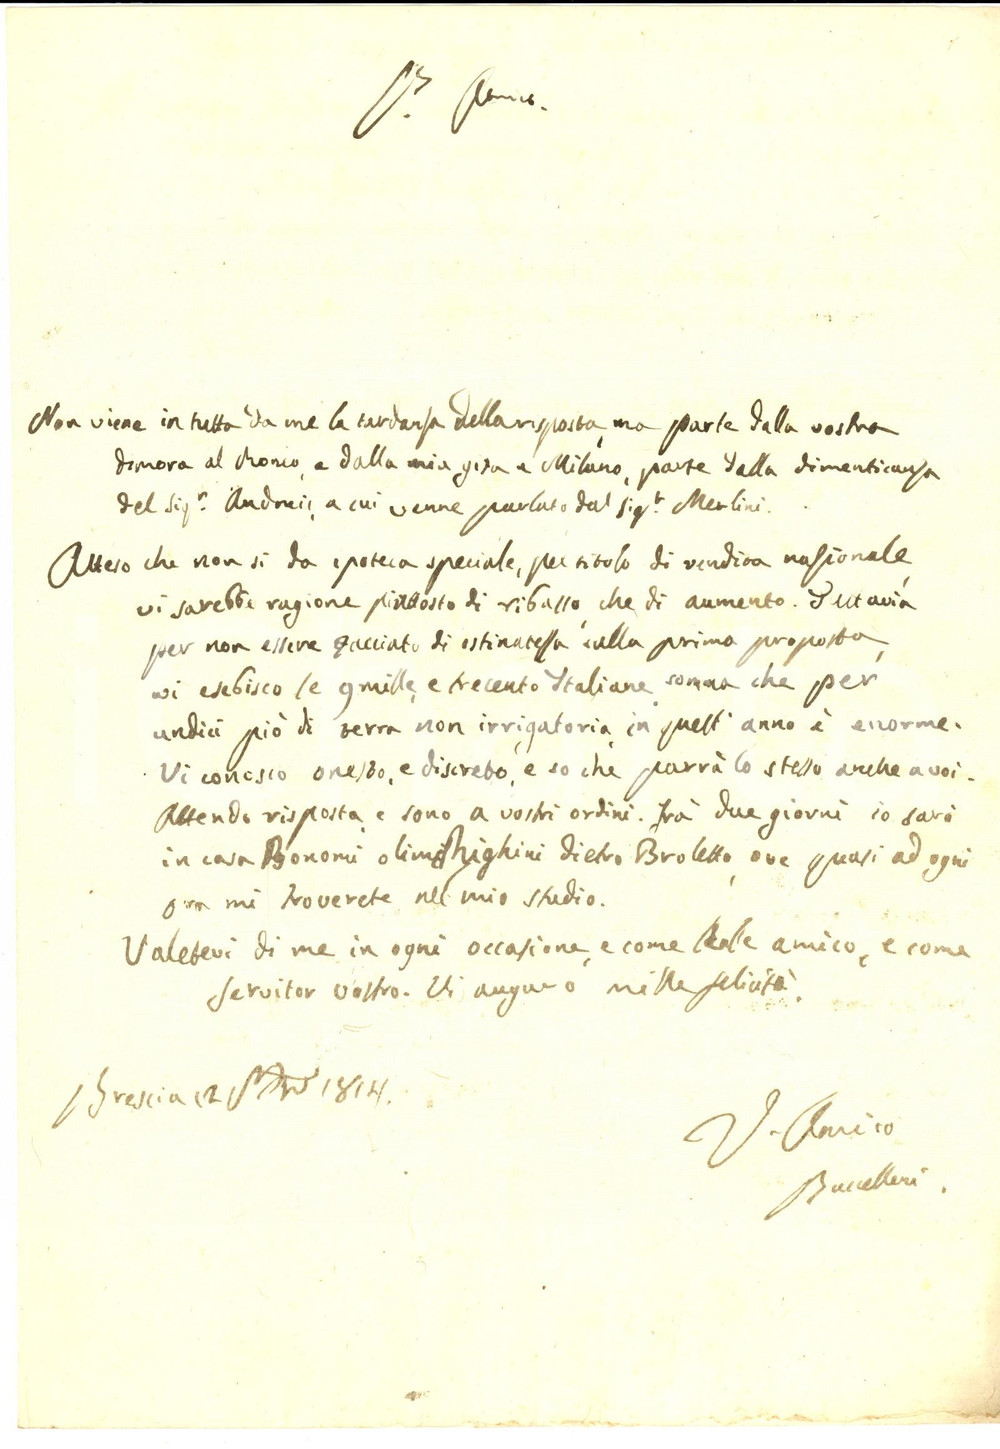 Amico.
Non viene in tutto da me la tardanza della risposta, ma parte dalla vostra
dimora al Ronco, e dalla mia gita a Milano, parte dalla dimenticanza
del Sigr. Andreis, a cui venne parlato dal Sigr. Merlini.
Atteso che non si da ipoteca speciale, per titolo di vendita nazionale
vi sarebbe ragione piuttosto di ribasso, che di aumento. Tuttavia
per non essere tacciato di ostinatezza sulla prima proposta,
vi esebisco le 9mille, e trecento Italiane somma che per
undici piò di terra non irrigatoria, in quest' anno è enorme.
Vi conosco onesto, e discreto, e so che parrà lo stesso anche a voi.
Attendo risposta, e sono a vostri ordini. Frà due giorni io sarò
in casa Bonomi olim Ghighini dietro Broletto, ove quasi ad ogni
ora mi troverete nel mio studio.
Valetevi di me in ogni occasione, e come leale amico, e come
servitor vostro. Vi auguro mille felicità.
Brescia 12 1814.
V. Amico
Buccelleni.